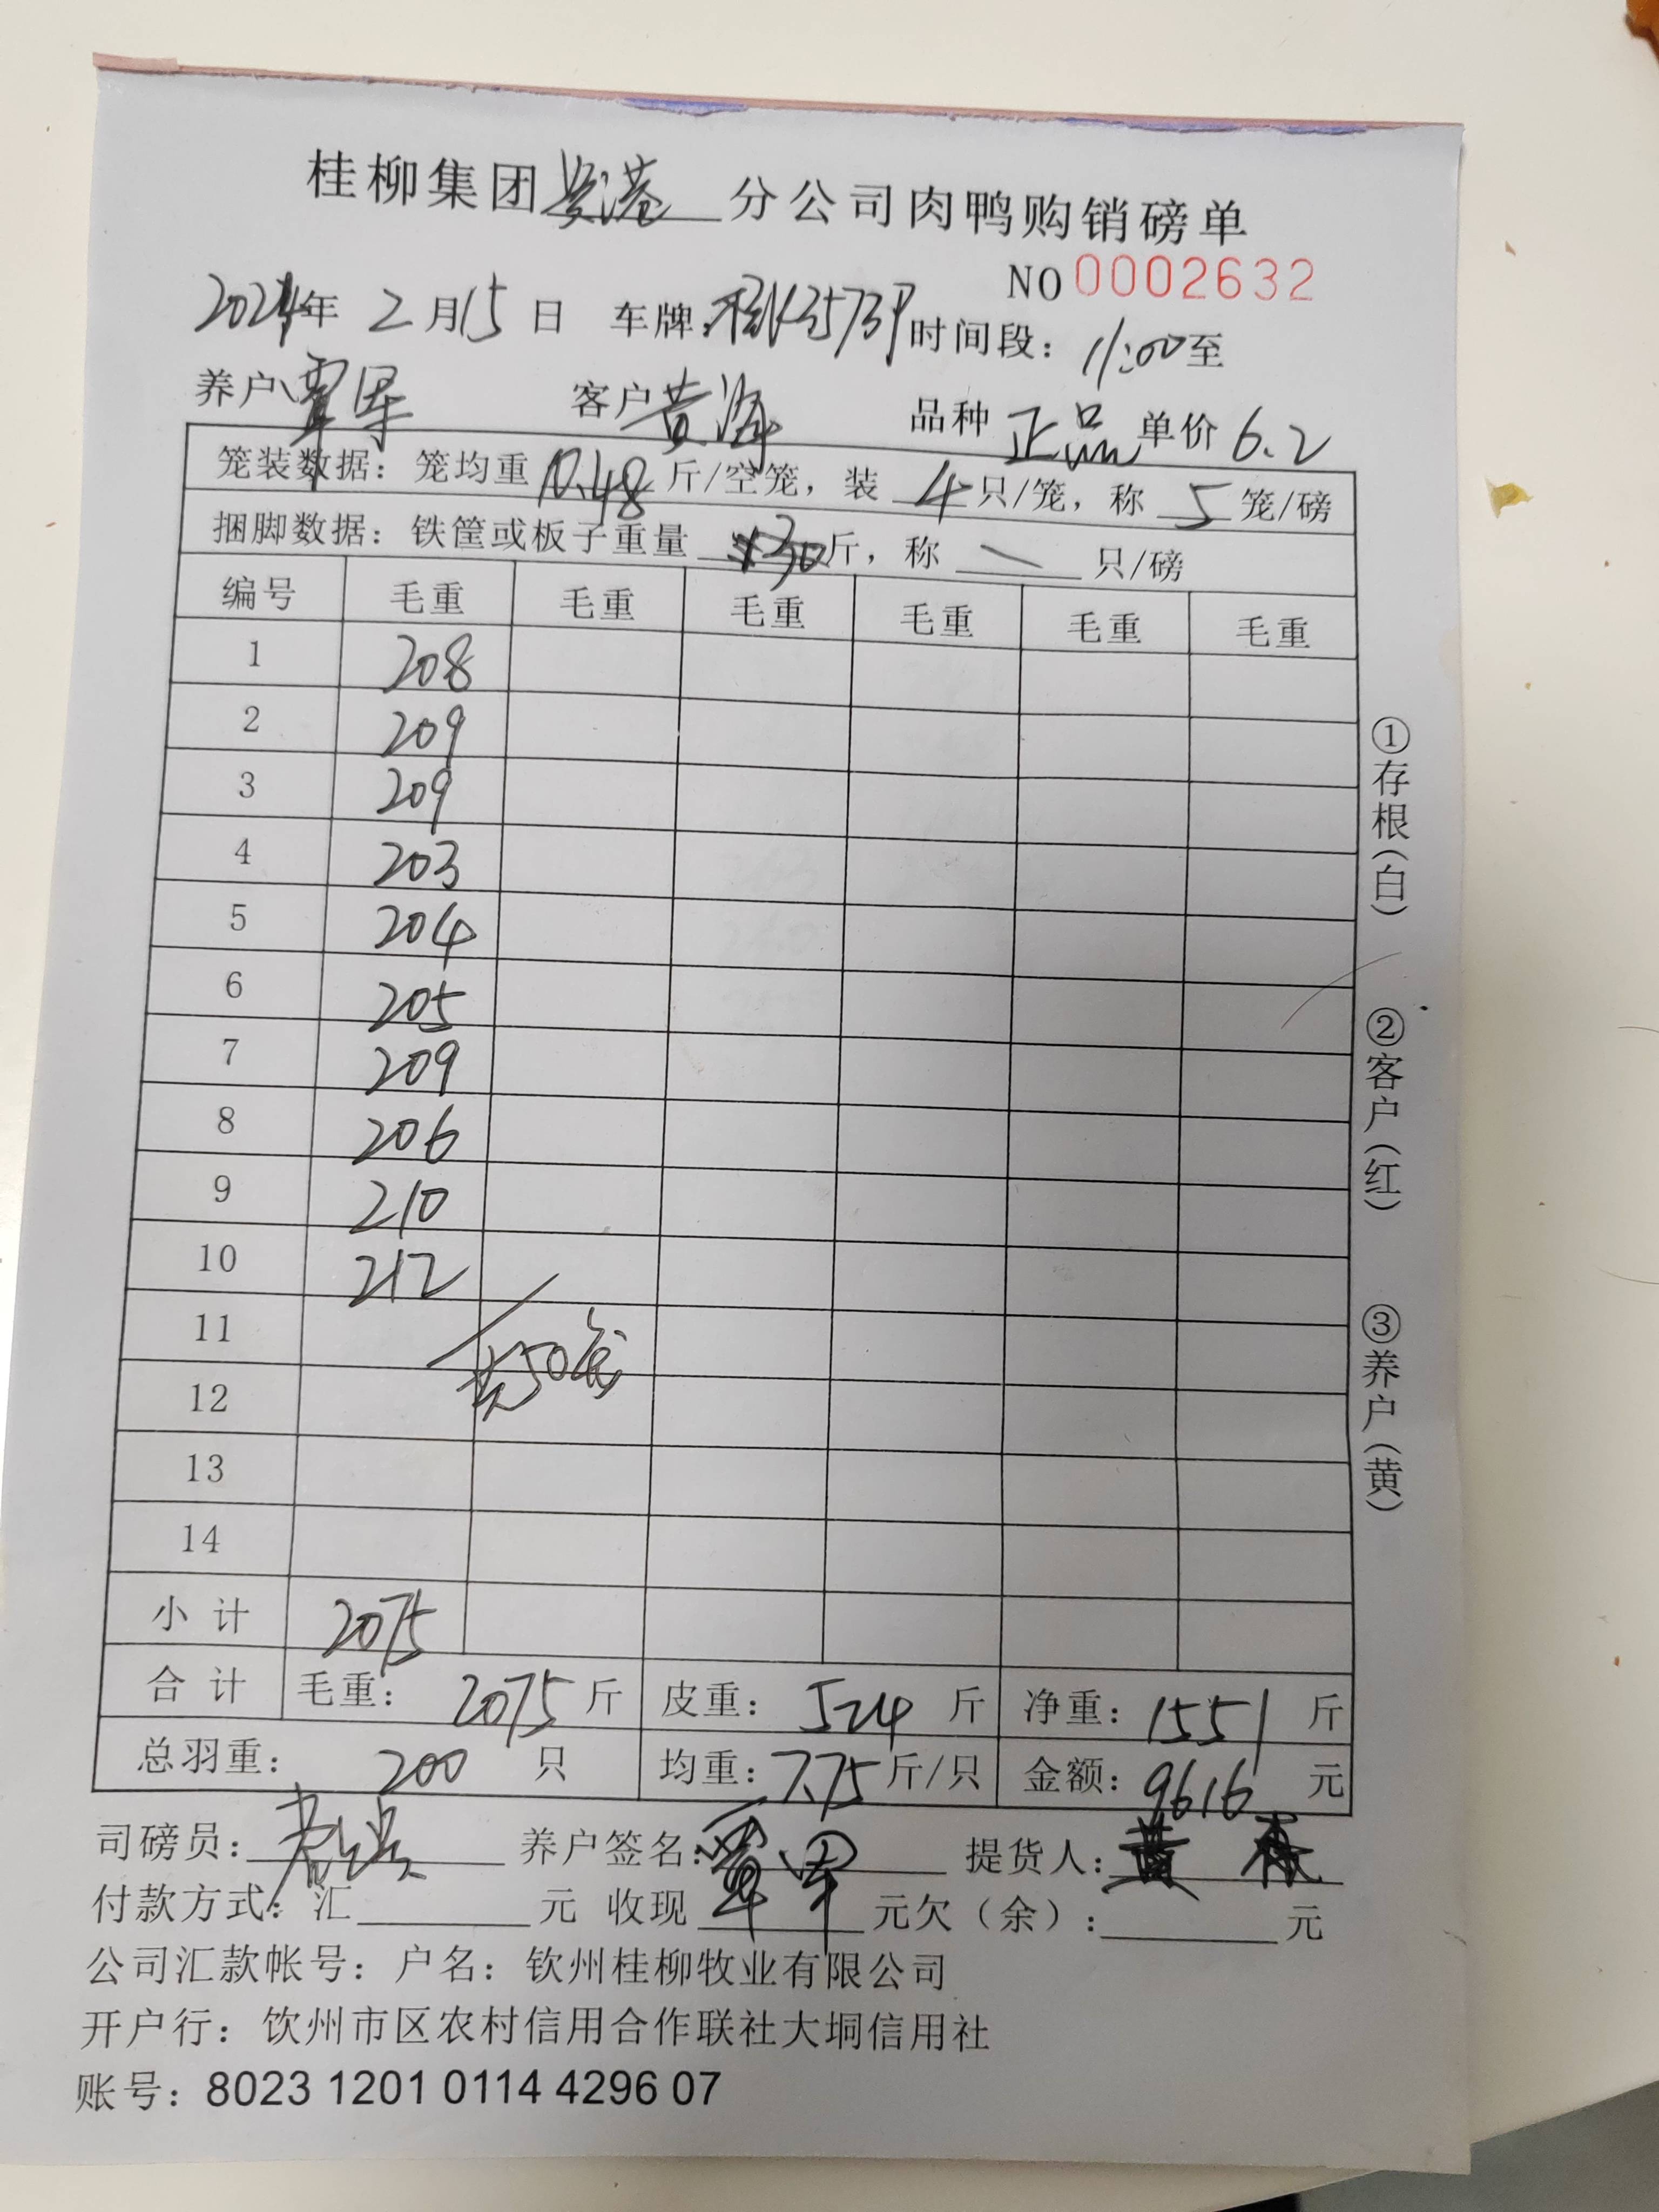 桂柳集团贵港分公司肉鸭购销磅单
NO 0002632
2024年 2月15日 车牌: 时间段: 11:00至
养户 覃军 客户 黄海 品种 正品 单价 6.2
笼装数据: 笼均重 10.48 斤/空笼, 装 4 只/笼, 称 5 笼/磅
捆脚数据: 铁筐或板子重量 斤, 称 只/磅
编号 毛重 毛重 毛重 毛重 毛重 毛重
1 208
2 209
3 209
4 203
5 204
6 205
7 209
8 206
9 210
10 212
11
共50笼
12
13
14
小计 2075
合计 毛重: 2075 斤 皮重: 524 斤 净重: 1551 斤
总羽重: 200 只 均重: 7.75 斤/只 金额: 9616 元
司磅员: 养户签名: 覃军 提货人: 黄
付款方式: 汇 元 收现 元欠(余): 元
公司汇款帐号: 户名: 钦州桂柳牧业有限公司
开户行: 饮州市区农村信用合作联社大垌信用社
账号: 8023 1201 0114 4296 07
①存根(白)
②客户(红)
③养户(黄)